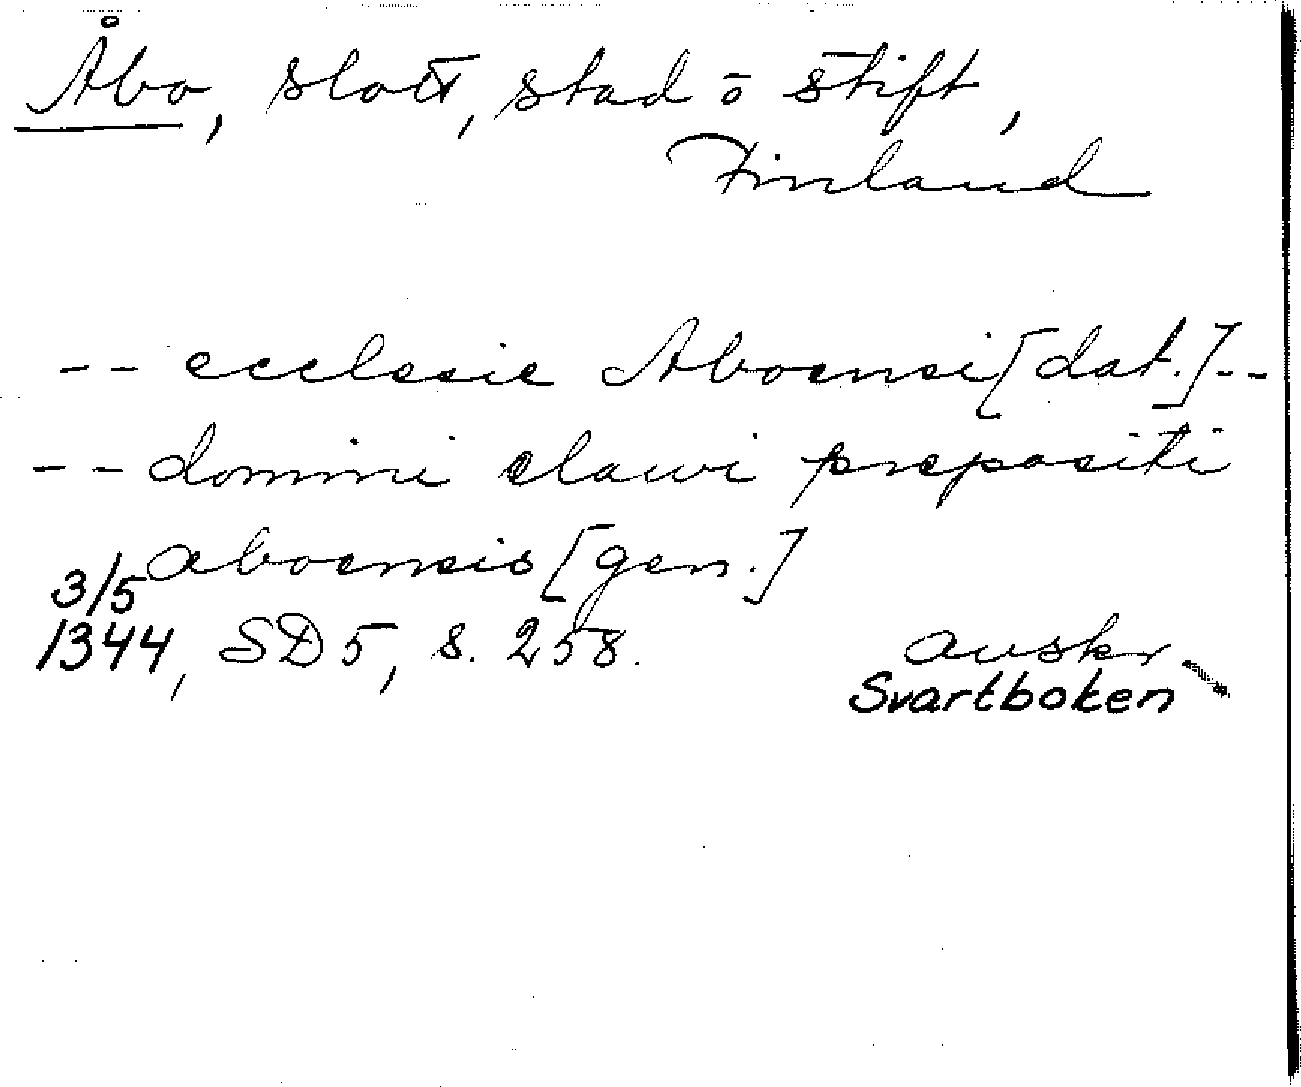 Åbo, slott, stad o stift,
Finland
-- ecclesie Aboensi [dat.] --
-- domini elawi prepositi
aboensis [gen.]
3/5
1344, SD 5, s. 258. avskr
Svartboken